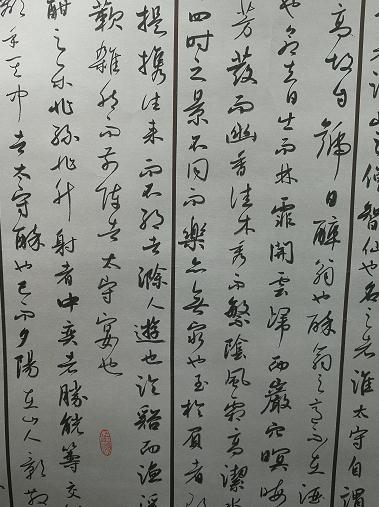 者誰山之僧智仙也名之者誰太守自謂
高故自號曰醉翁也醉翁之意不在酒
也若夫日出而林霏開雲歸而巖穴暝晦
芳發而幽香佳木秀而繁陰風霜高潔水
四時之景不同而樂亦無窮也至於負者
提攜往來而不絕者滁人遊也臨谿而漁谿
蔌雜然而前陳者太守宴也
酣之樂非絲非竹射者中奕者勝觥籌交
乎其中者太守醉也已而夕陽在山人影散